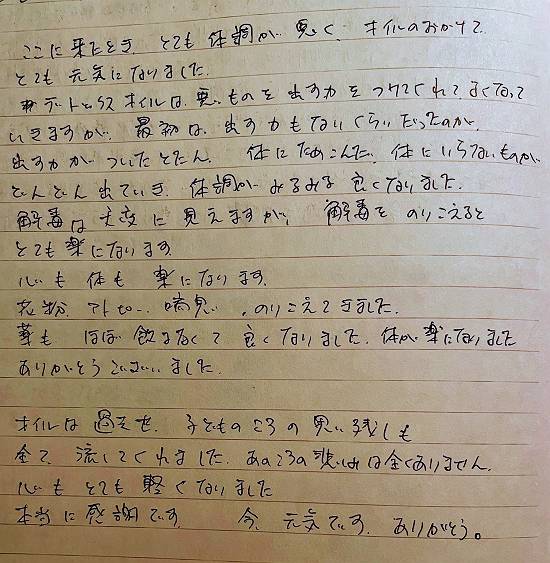 ここに来たとき とても体調が悪く、オイルのおかげで
とても元気になりました。
デトックスオイルは、悪いものを出す力をつけてくれて、よくなって
いきますが、最初は、出す力もないくらいだったのが、
出す力がついたとたん、体にためこんだ、体にいらないものが
どんどん出ていき、体調がみるみる良くなりました。
解毒は大変に見えますが、解毒をのりこえると
とても楽になります。
心も体も楽になります。
花粉、アトピー、喘息、のりこえてきました。
薬もほぼ飲まなくて良くなりました。体が楽になりました
ありがとうございました。
オイルは過去世、子どものころの思い残しも
全て、流してくれました。あのころの悲しみは全くありません。
心もとても軽くなりました
本当に感謝です。 今、元気です。ありがとう。